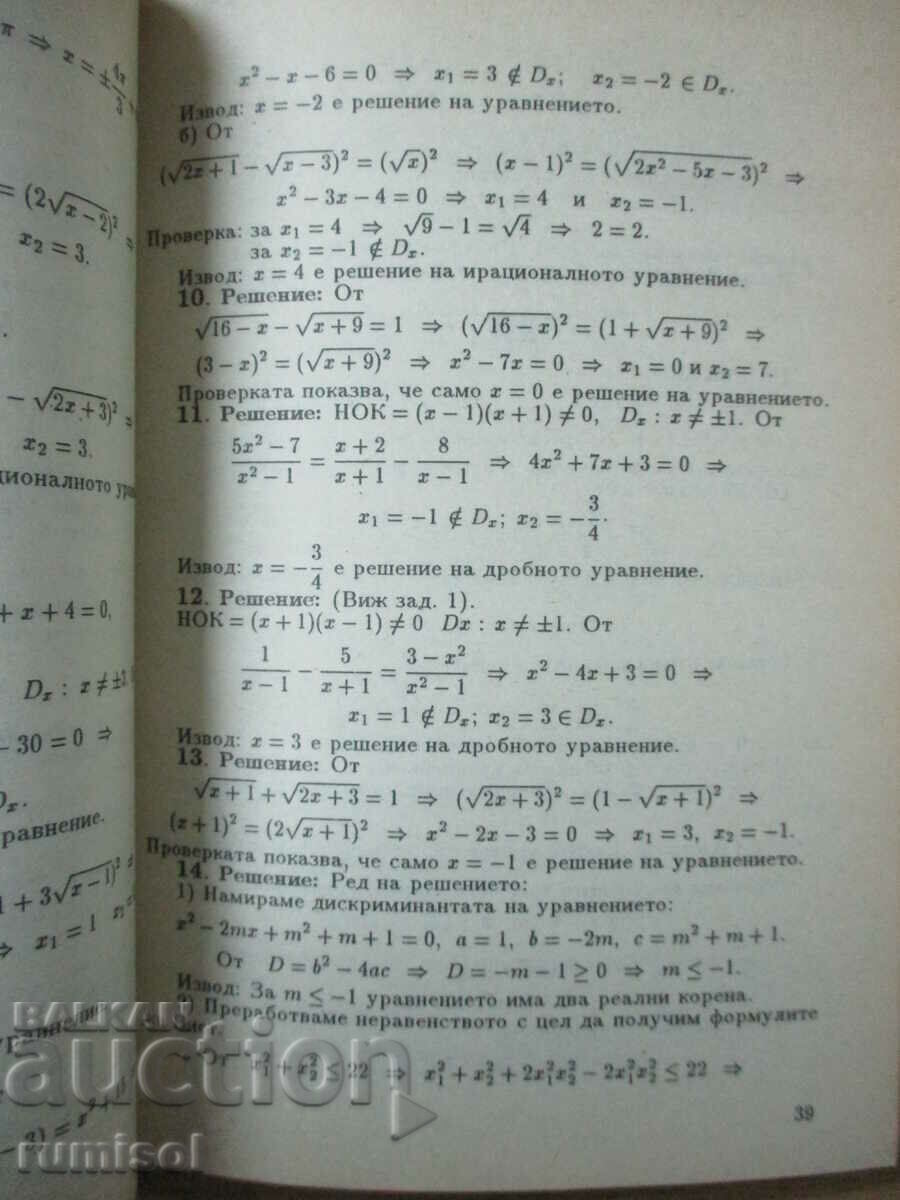 π ⇒ x = ±4π/3
= (2√(x−2))² =
x₂ = 3.
− √(2x+3)² =
x₂ = 3.
+ x + 4 = 0,
Dₓ : x ≠ ±
− 30 = 0 ⇒
Dₓ.
уравнение.
1 + 3√(x−1))² =
⇒ x₁ = 1
x² − x − 6 = 0 ⇒ x₁ = 3 ∉ Dₓ; x₂ = −2 ∈ Dₓ.
Извод: x = −2 е решение на уравнението.
б) От
(√(2x+1) − √(x−3))² = (√x)² ⇒ (x − 1)² = (√(2x² − 5x − 3))² ⇒
x² − 3x − 4 = 0 ⇒ x₁ = 4 и x₂ = −1.
Проверка: за x₁ = 4 ⇒ √9 − 1 = √4 ⇒ 2 = 2.
за x₂ = −1 ∉ Dₓ.
Извод: x = 4 е решение на ирационалното уравнение.
10. Решение: От
√(16 − x) − √(x + 9) = 1 ⇒ (√(16 − x))² = (1 + √(x + 9))² ⇒
(3 − x)² = (√(x + 9))² ⇒ x² − 7x = 0 ⇒ x₁ = 0 и x₂ = 7.
Проверката показва, че само x = 0 е решение на уравнението.
11. Решение: НОК = (x − 1)(x + 1) ≠ 0, Dₓ : x ≠ ±1. От
(5x² − 7)/(x² − 1) = (x + 2)/(x + 1) − 8/(x − 1) ⇒ 4x² + 7x + 3 = 0 ⇒
x₁ = −1 ∉ Dₓ; x₂ = −3/4.
Извод: x = −3/4 е решение на дробното уравнение.
12. Решение: (Виж зад. 1).
НОК = (x + 1)(x − 1) ≠ 0 Dx : x ≠ ±1. От
1/(x − 1) − 5/(x + 1) = (3 − x²)/(x² − 1) ⇒ x² − 4x + 3 = 0 ⇒
x₁ = 1 ∉ Dₓ; x₂ = 3 ∈ Dₓ.
Извод: x = 3 е решение на дробното уравнение.
13. Решение: От
√(x + 1) + √(2x + 3) = 1 ⇒ (√(2x + 3))² = (1 − √(x + 1))² ⇒
(x + 1)² = (2√(x + 1))² ⇒ x² − 2x − 3 = 0 ⇒ x₁ = 3, x₂ = −1.
Проверката показва, че само x = −1 е решение на уравнението.
14. Решение: Ред на решението:
1) Намираме дискриминантата на уравнението:
x² − 2mx + m² + m + 1 = 0, a = 1, b = −2m, c = m² + m + 1.
От D = b² − 4ac ⇒ D = −m − 1 ≥ 0 ⇒ m ≤ −1.
Извод: За m ≤ −1 уравнението има два реални корена.
2) Преработваме неравенството с цел да получим формулите
От x₁² + x₂² ≤ 22 ⇒ x₁² + x₂² + 2x₁²x₂² − 2x₁²x₂² ≤ 22 ⇒
39
BALKAN
auction
rumisol